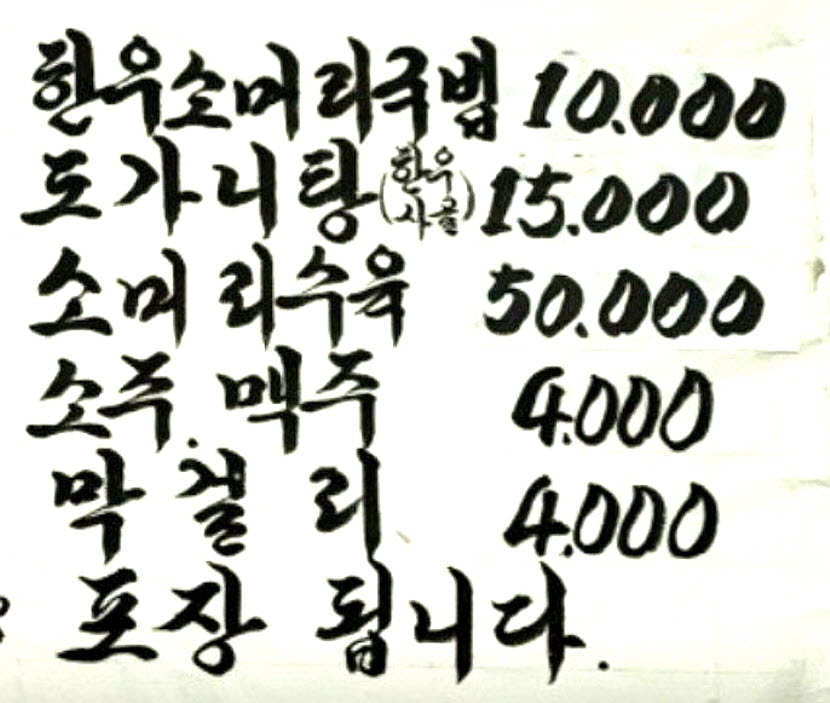 한우소머리국밥 10.000
도가니탕(한우사골) 15.000
소머리수육 50.000
소주.맥주 4.000
막걸리 4.000
포장 됩니다.